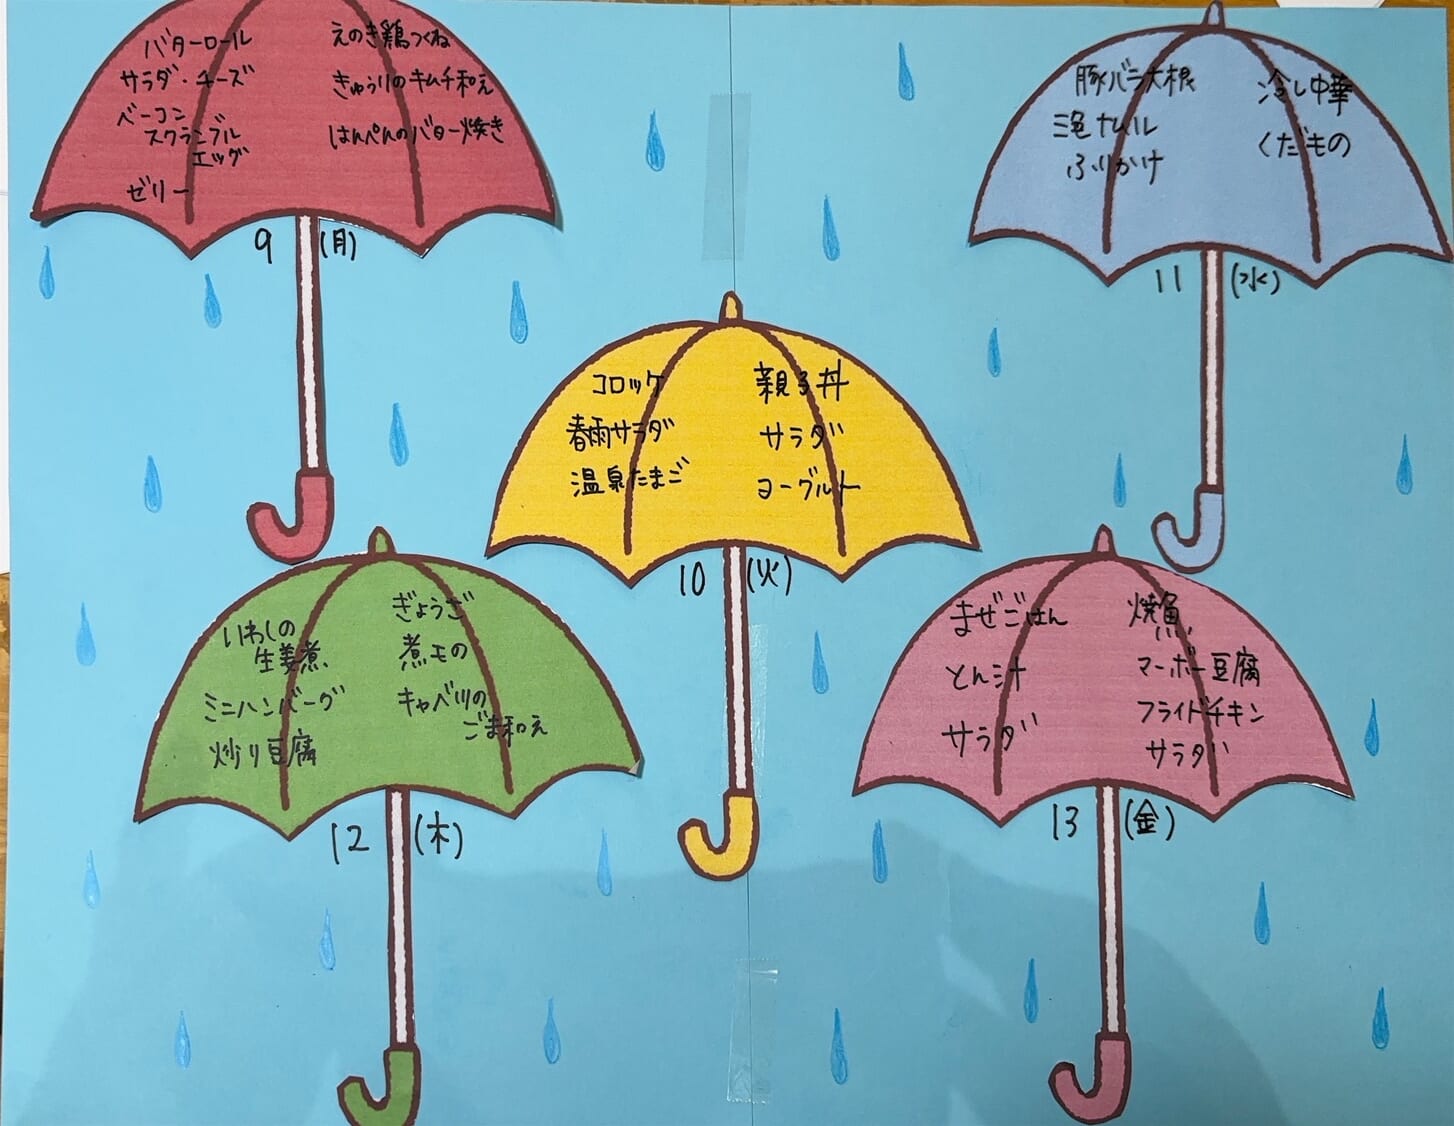 バターロール
サラダ・チーズ
ベーコン
スクランブル
エッグ
ゼリー
えのき鶏つくね
きゅうりのキムチ和え
はんぺんのバター焼き
9 (月)
豚バラ大根
三色ナムル
ふりかけ
冷し中華
くだもの
11 (水)
コロッケ
春雨サラダ
温泉たまご
親子丼
サラダ
ヨーグルト
10 (火)
いわしの
生姜煮
ミニハンバーグ
炒り豆腐
ぎょうざ
煮もの
キャベツの
ごま和え
12 (木)
まぜごはん
とん汁
サラダ
焼魚
マーボー豆腐
フライドチキン
サラダ
13 (金)